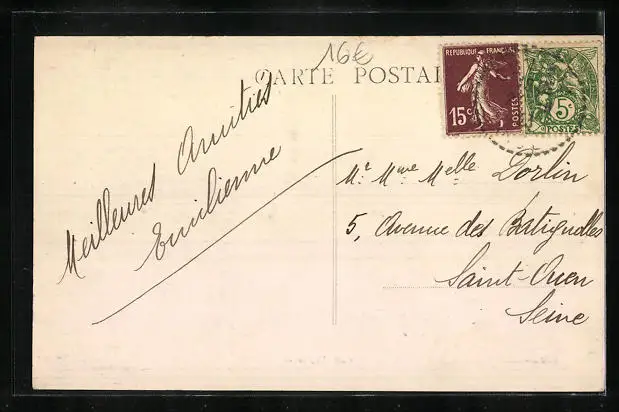 16€
CARTE POSTAL
REPUBLIQUE FRANÇAISE
15c
POSTES
5c
POSTES
Meilleures Amitiés
Emilienne
Mr Mme Melle Dorlin
5, Avenue des Batignolles
Saint-Ouen
Seine